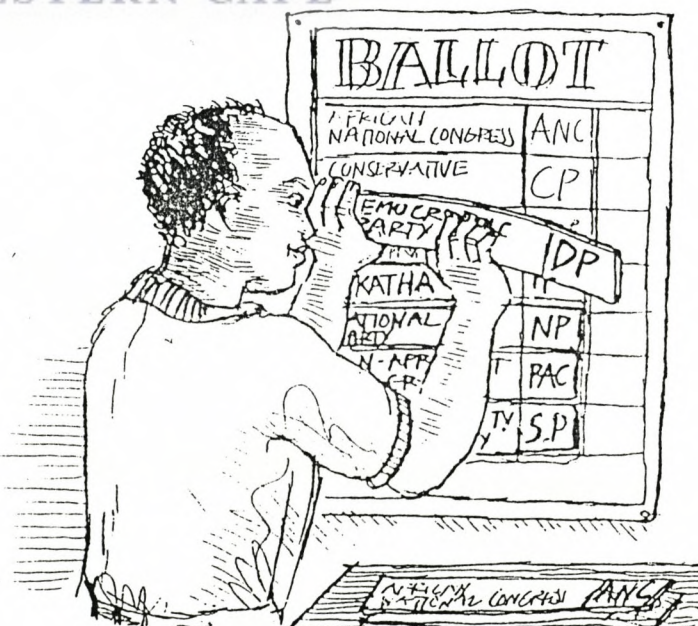 BALLOT
AFRICAN
NATIONAL CONGRESS ANC
CONSERVATIVE CP
EMOCRATIC
PARTY DP
KATHA
ATIONAL NP
N-APR PAC
TY S.P
NATIONAL CONGRESS ANC